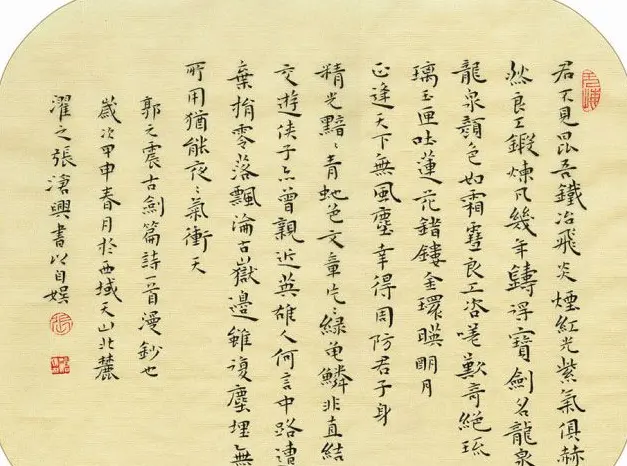 君不見昆吾鐵冶飛炎煙紅光紫氣俱赫
然良工鍛煉凡幾年鑄得寶劍名龍泉
龍泉顏色如霜雪良工咨嗟歎奇絕琉
璃玉匣吐蓮花錯鏤金環暎明月
正逢天下無風塵幸得周防君子身
精光黯〻青虵色文章片〻綠龜鱗非直結
交遊俠子亦曾親近英雄人何言中路遭
棄捐零落飄淪古嶽邊雖複塵埋無
所用猶能夜〻氣衝天
郭之震古劍篇詩一首漫鈔也
歲次甲申春月於西域天山北麓
濯之張滄興書以自娛